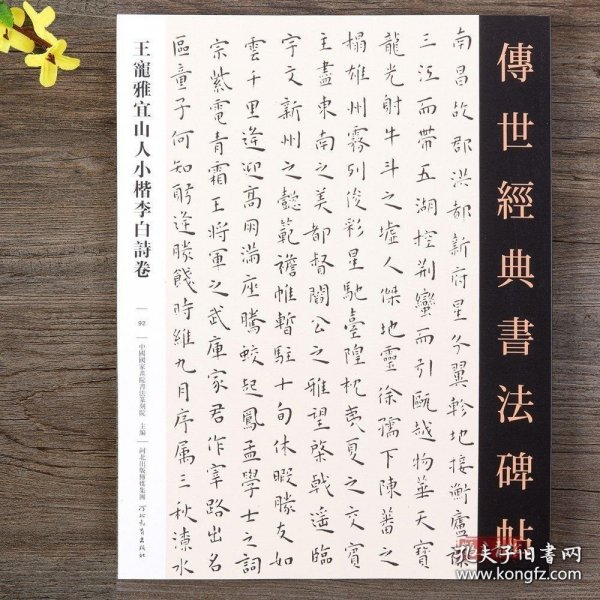 傳世經典書法碑帖
南昌故郡洪都新府星分翼軫地接衡廬襟
三江而帶五湖控荆蠻而引甌越物華天寶
龍光射牛斗之虛人傑地靈徐孺下陳蕃之
榻雄州霧列俊彩星馳臺隍枕夷夏之交賓
主盡東南之美都督閻公之雅望棨戟遥臨
宇文新州之懿範襜帷暫駐十旬休暇勝友如
雲千里逢迎高朋滿座騰蛟起鳳孟學士之詞
宗紫電青霜王將軍之武庫家君作宰路出名
區童子何知躬逢勝餞時維九月序屬三秋潦水
王寵雅宜山人小楷李白詩卷
92
中國國家畫院書法篆刻院 主編
河北出版傳媒集團 河北教育出版社
孔夫子旧書网
www.kongfz.com